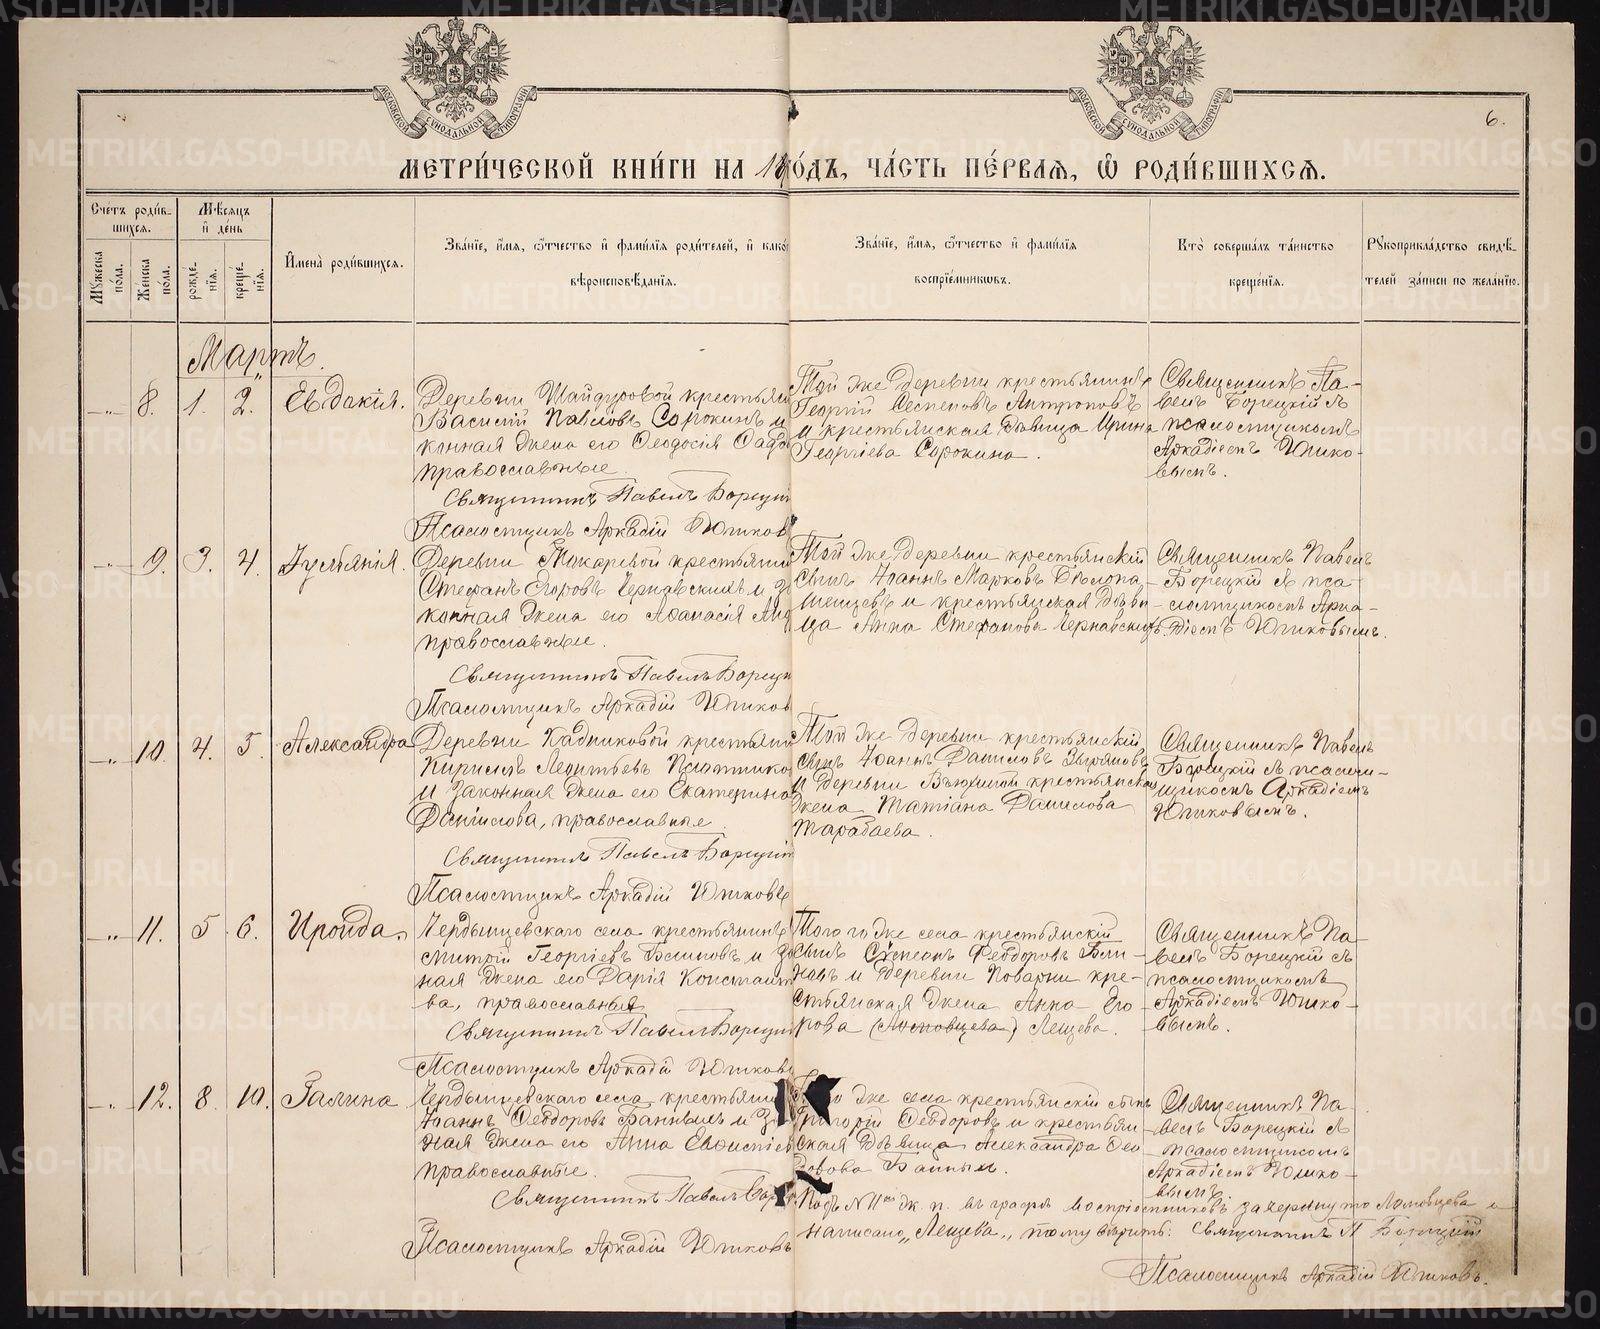 METRIKI.GASO-URAL.RU
6.
МОСКОВСКОЙ СѴНОДАЛЬНОЙ ТИПОГРАФІИ
МОСКОВСКОЙ СѴНОДАЛЬНОЙ ТИПОГРАФІИ
МЕТРИ́ЧЕСКОЙ КНИ́ГИ НА 18 ГО́ДЪ, ЧА́СТЬ ПЕ́РВАЯ, Ѡ РОДИ́ВШИХСЯ.
Сче́тъ роди́вшихся.
Му́жеска по́ла.
Же́нска по́ла.
Мѣ́сяцъ и де́нь
рожде́нїя.
креще́нїя.
Имена̀ роди́вшихся.
Зва́нїе, и́мя, ѻ́тчество и фами́лїя роди́телей, и како́
вѣроисповѣ́данїя.
Зва́нїе, и́мя, ѻ́тчество и фами́лїя
воспрїе́мниковъ.
Кто̀ соверша́лъ та́инство
креще́нїя.
Рꙋкоприкла́дство свидѣ́
телей за́писи по жела́нїю.
Мартъ.
— „ — 8. 1. 2. Евдокія.
Деревни Шайдуровой крестьянин
Василій Павловъ Сорокинъ и
конная жена его Ѳеодосія
православные.
Священникъ Павелъ Борецкій
Псаломщикъ Аркадій Юшковъ
Той же деревни крестьянинъ
Георгій Антроповъ
и крестьянская дѣвица Ирина
Георгіева Сорокина.
Священникъ Па-
велъ Борецкій съ
псаломщикомъ
Аркадіемъ Юшко-
вымъ.
— „ — 9. 3. 4. Іуліанія.
Деревни Токаревой крестьянин
Стефанъ Егоровъ Чернавскихъ и за
конная жена его Аѳанасія Анд
православные.
Священникъ Павелъ Борецк
Псаломщикъ Аркадій Юшков
Той же деревни крестьянскій
сынъ Іоаннъ Марковъ Бѣлопа-
шенцевъ и крестьянская дѣви-
ца Анна Стефанова Чернавскихъ.
Священникъ Павелъ
Борецкій съ пса-
ломщикомъ Арка-
діемъ Юшковымъ.
— „ — 10. 4. 5. Александра
Деревни Кадниковой крестьянин
Кириллъ Леонтьевъ Плотнико
и законная жена его Екатерина
Даніилова, православные.
Священникъ Павелъ Борецкій
Псаломщикъ Аркадій Юшковъ
Той же деревни крестьянскій
сынъ Іоаннъ Даниловъ Зыряновъ
и деревни крестьянская
жена Татіана Данилова
Тарабаева.
Священникъ Павелъ
Борецкій съ псалом-
щикомъ Аркадіемъ
Юшковымъ.
— „ — 11. 5. 6. Ираида.
Чердынцевскаго села крестьянинъ
митрій Георгіевъ Блиновъ и за
ная жена его Дарія Констант
ва, православные
Священникъ Павелъ Борецкі
Псаломщикъ Аркадій Юшковъ
Того же села крестьянскій
сынъ Сѵмеонъ Ѳеодоровъ Бли-
новъ и деревни Поварни кре-
стьянская жена Анна Его
рова (Ломовцева) Лещева.
Священникъ Па-
велъ Борецкій съ
псаломщикомъ
Аркадіемъ Юшко-
вымъ.
— „ — 12. 8. 10. Галина
Чердынцевскаго села крестьянин
Іоаннъ Ѳеодоровъ Банныхъ и за
ная жена его Анна
православные.
Священникъ Павелъ Бор
Псаломщикъ Аркадій Юшковъ
Того же села крестьянскій сынъ
Григорій Ѳеодоровъ и крестьян-
ская дѣвица Александра Ѳео-
дорова Банныхъ.
Священникъ Па-
велъ Борецкій съ
псаломщикомъ
Аркадіемъ Юшко-
вымъ
Подъ № 11мъ ж. п. въ графѣ воспріемниковъ зачеркнуто Ломовцева и
написано „Лещева„, тому вѣрить. Священникъ П Борецкій
Псаломщикъ Аркадій Юшковъ.